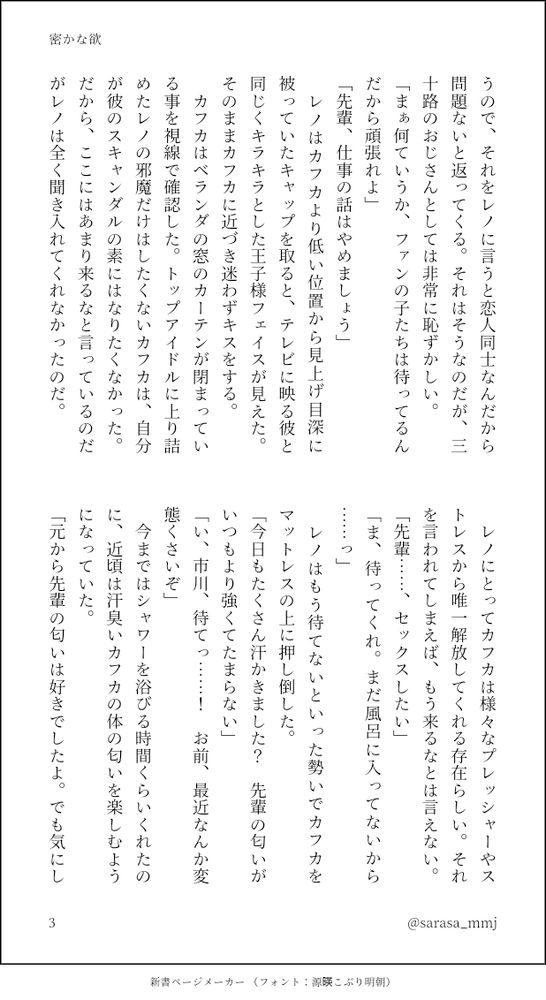 密かな欲
うので、それをレノに言うと恋人同士なんだから
問題ないと返ってくる。それはそうなのだが、三
十路のおじさんとしては非常に恥ずかしい。
「まぁ何ていうか、ファンの子たちは待ってるん
だから頑張れよ」
「先輩、仕事の話はやめましょう」
レノはカフカより低い位置から見上げ目深に
被っていたキャップを取ると、テレビに映る彼と
同じくキラキラとした王子様フェイスが見えた。
そのままカフカに近づき迷わずキスをする。
カフカはベランダの窓のカーテンが閉まってい
る事を視線で確認した。トップアイドルに上り詰
めたレノの邪魔だけはしたくないカフカは、自分
が彼のスキャンダルの素にはなりたくなかった。
だから、ここにはあまり来るなと言っているのだ
がレノは全く聞き入れてくれなかったのだ。
レノにとってカフカは様々なプレッシャーやス
トレスから唯一解放してくれる存在らしい。それ
を言われてしまえば、もう来るなとは言えない。
「先輩……、セックスしたい」
「ま、待ってくれ。まだ風呂に入ってないから
……っ」
レノはもう待てないといった勢いでカフカを
マットレスの上に押し倒した。
「今日もたくさん汗かきました？　先輩の匂いが
いつもより強くてたまらない」
「い、市川、待てっ……！　お前、最近なんか変
態くさいぞ」
今まではシャワーを浴びる時間くらいくれたの
に、近頃は汗臭いカフカの体の匂いを楽しむよう
になっていた。
「元から先輩の匂いは好きでしたよ。でも気にし
3
@sarasa_mmj
新書ページメーカー（フォント：源暎こぶり明朝）